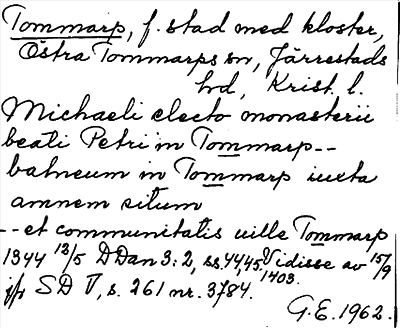 Tommarp, f. stad med kloster,
Östra Tommarps sn, Järrestads
hd, Krist. l.
Michaeli electo monasterii
beati Petri in Tommarp--
balneum in Tommarp iuxta
amnem situm
--et communitatis uille Tommarp
1344 12/5 DDan 3:2, ss. 44,45. Vidisse av 15/9
1403.
jfr SD V, s. 261 nr. 3784.
G.E. 1962.